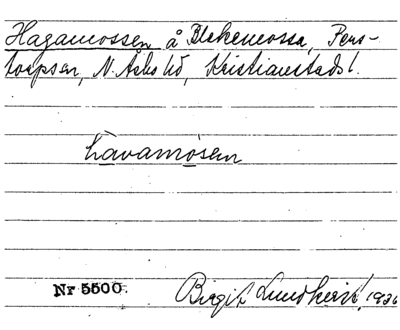 Hagamossen å Blekemossa, Pers-
torpsn, N. Åsbo hd, Kristianstads l.
havamósen
Nr 5500.
Birgit Lundkvist, 1936